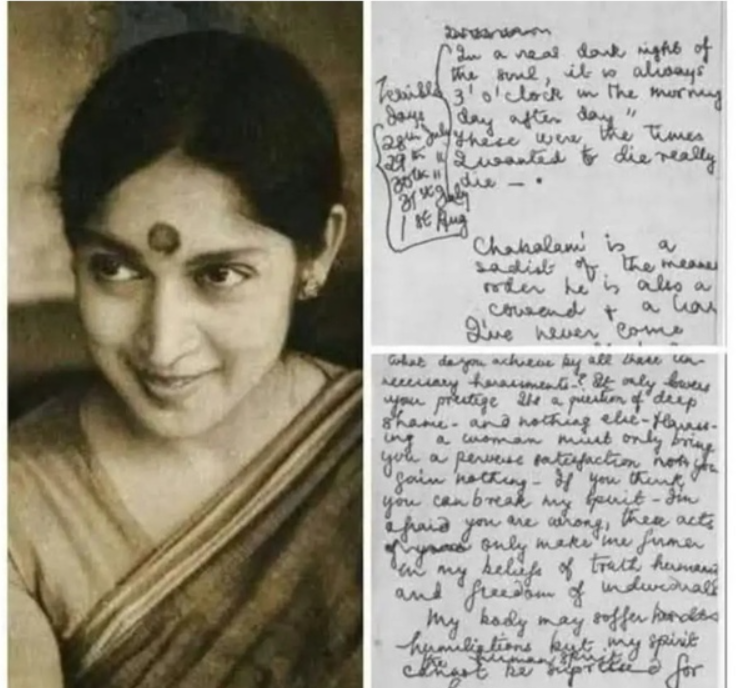 In a real dark night of
the soul, it is always
3'o'clock in the morning
day after day "
These were the times
I wanted to die really
die — .
Terrible
days
28th July
29th "
30th "
31st July
1st Aug
Chahalani is a
sadist of the meanes
order he is also a
coward + a liar
I've never come
What do you achieve by all these un-
necessary harassments-? It only lowers
your prestige Its a question of deep
shame - and nothing else - Harass-
ing a woman must only bring
you a perverse satisfaction now you
gain nothing - If you think
you can break my spirit - I'm
afraid you are wrong, these acts
only make me firmer
in my beliefs of truth humani
and freedom of individuals
My body may suffer
humiliations but my spirit
the human spirit
cannot be for